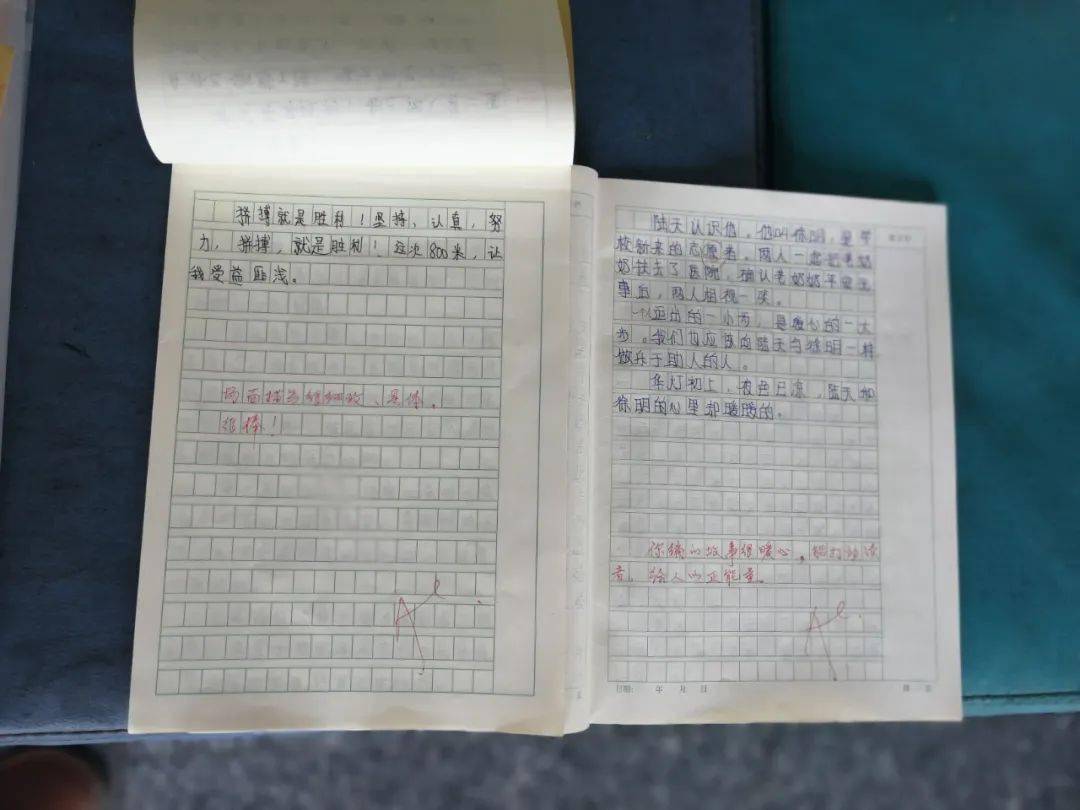 拼搏就是胜利！坚持，认真，努
力，拼搏，就是胜利！这次800米，让
我受益匪浅。
场面描写细致、具体。
很棒！
陆天认识他。他叫徐明，是学
校新来的志愿者。两人一起把老奶
奶扶去了医院，确认老奶奶平安无
事后，两人相视一笑。
迈出的一小步，是暖心的一大
步。我们也应该向陆天与徐明一样
做乐于助人的人。
华灯初上，夜色已凉，陆天和
徐明的心里却暖暖的。
你编的故事很暖心，能打动读
者，给人以正能量。
日期： 年 月 日
第 页